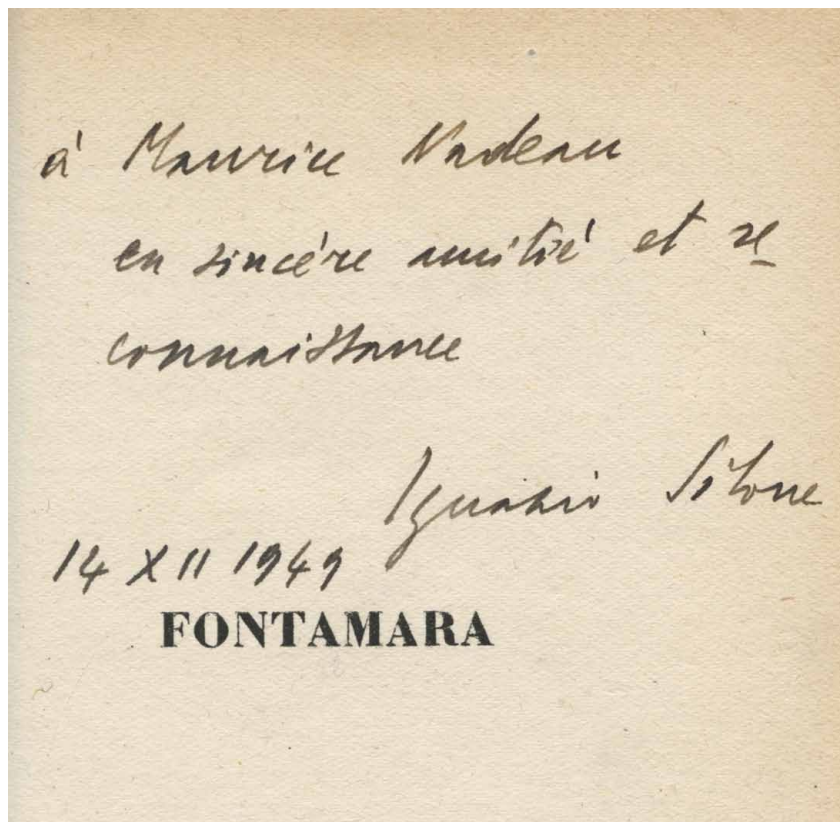 à Maurice Nadeau
en sincère amitié et re
connaissance
Ignazio Silone
14 XII 1949
FONTAMARA